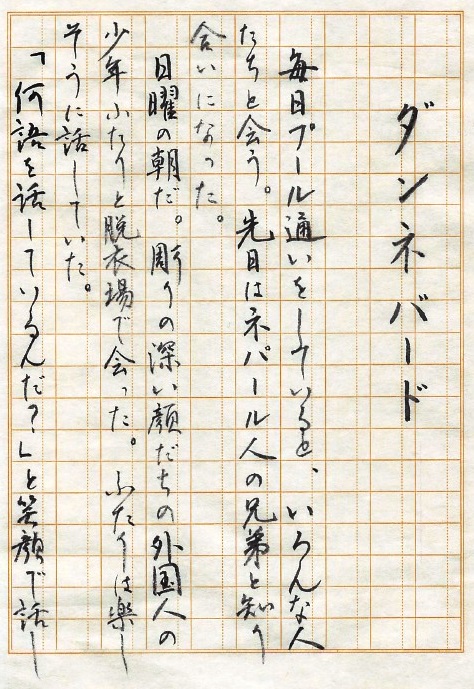 ダンネバード
毎日プール通いをしていると、いろんな人
たちと会う。先日はネパール人の兄弟と知り
合いになった。
日曜の朝だ。彫りの深い顔だちの外国人の
少年ふたりと脱衣場で会った。ふたりは楽し
そうに話していた。
「何語を話しているんだ？」と笑顔で話し